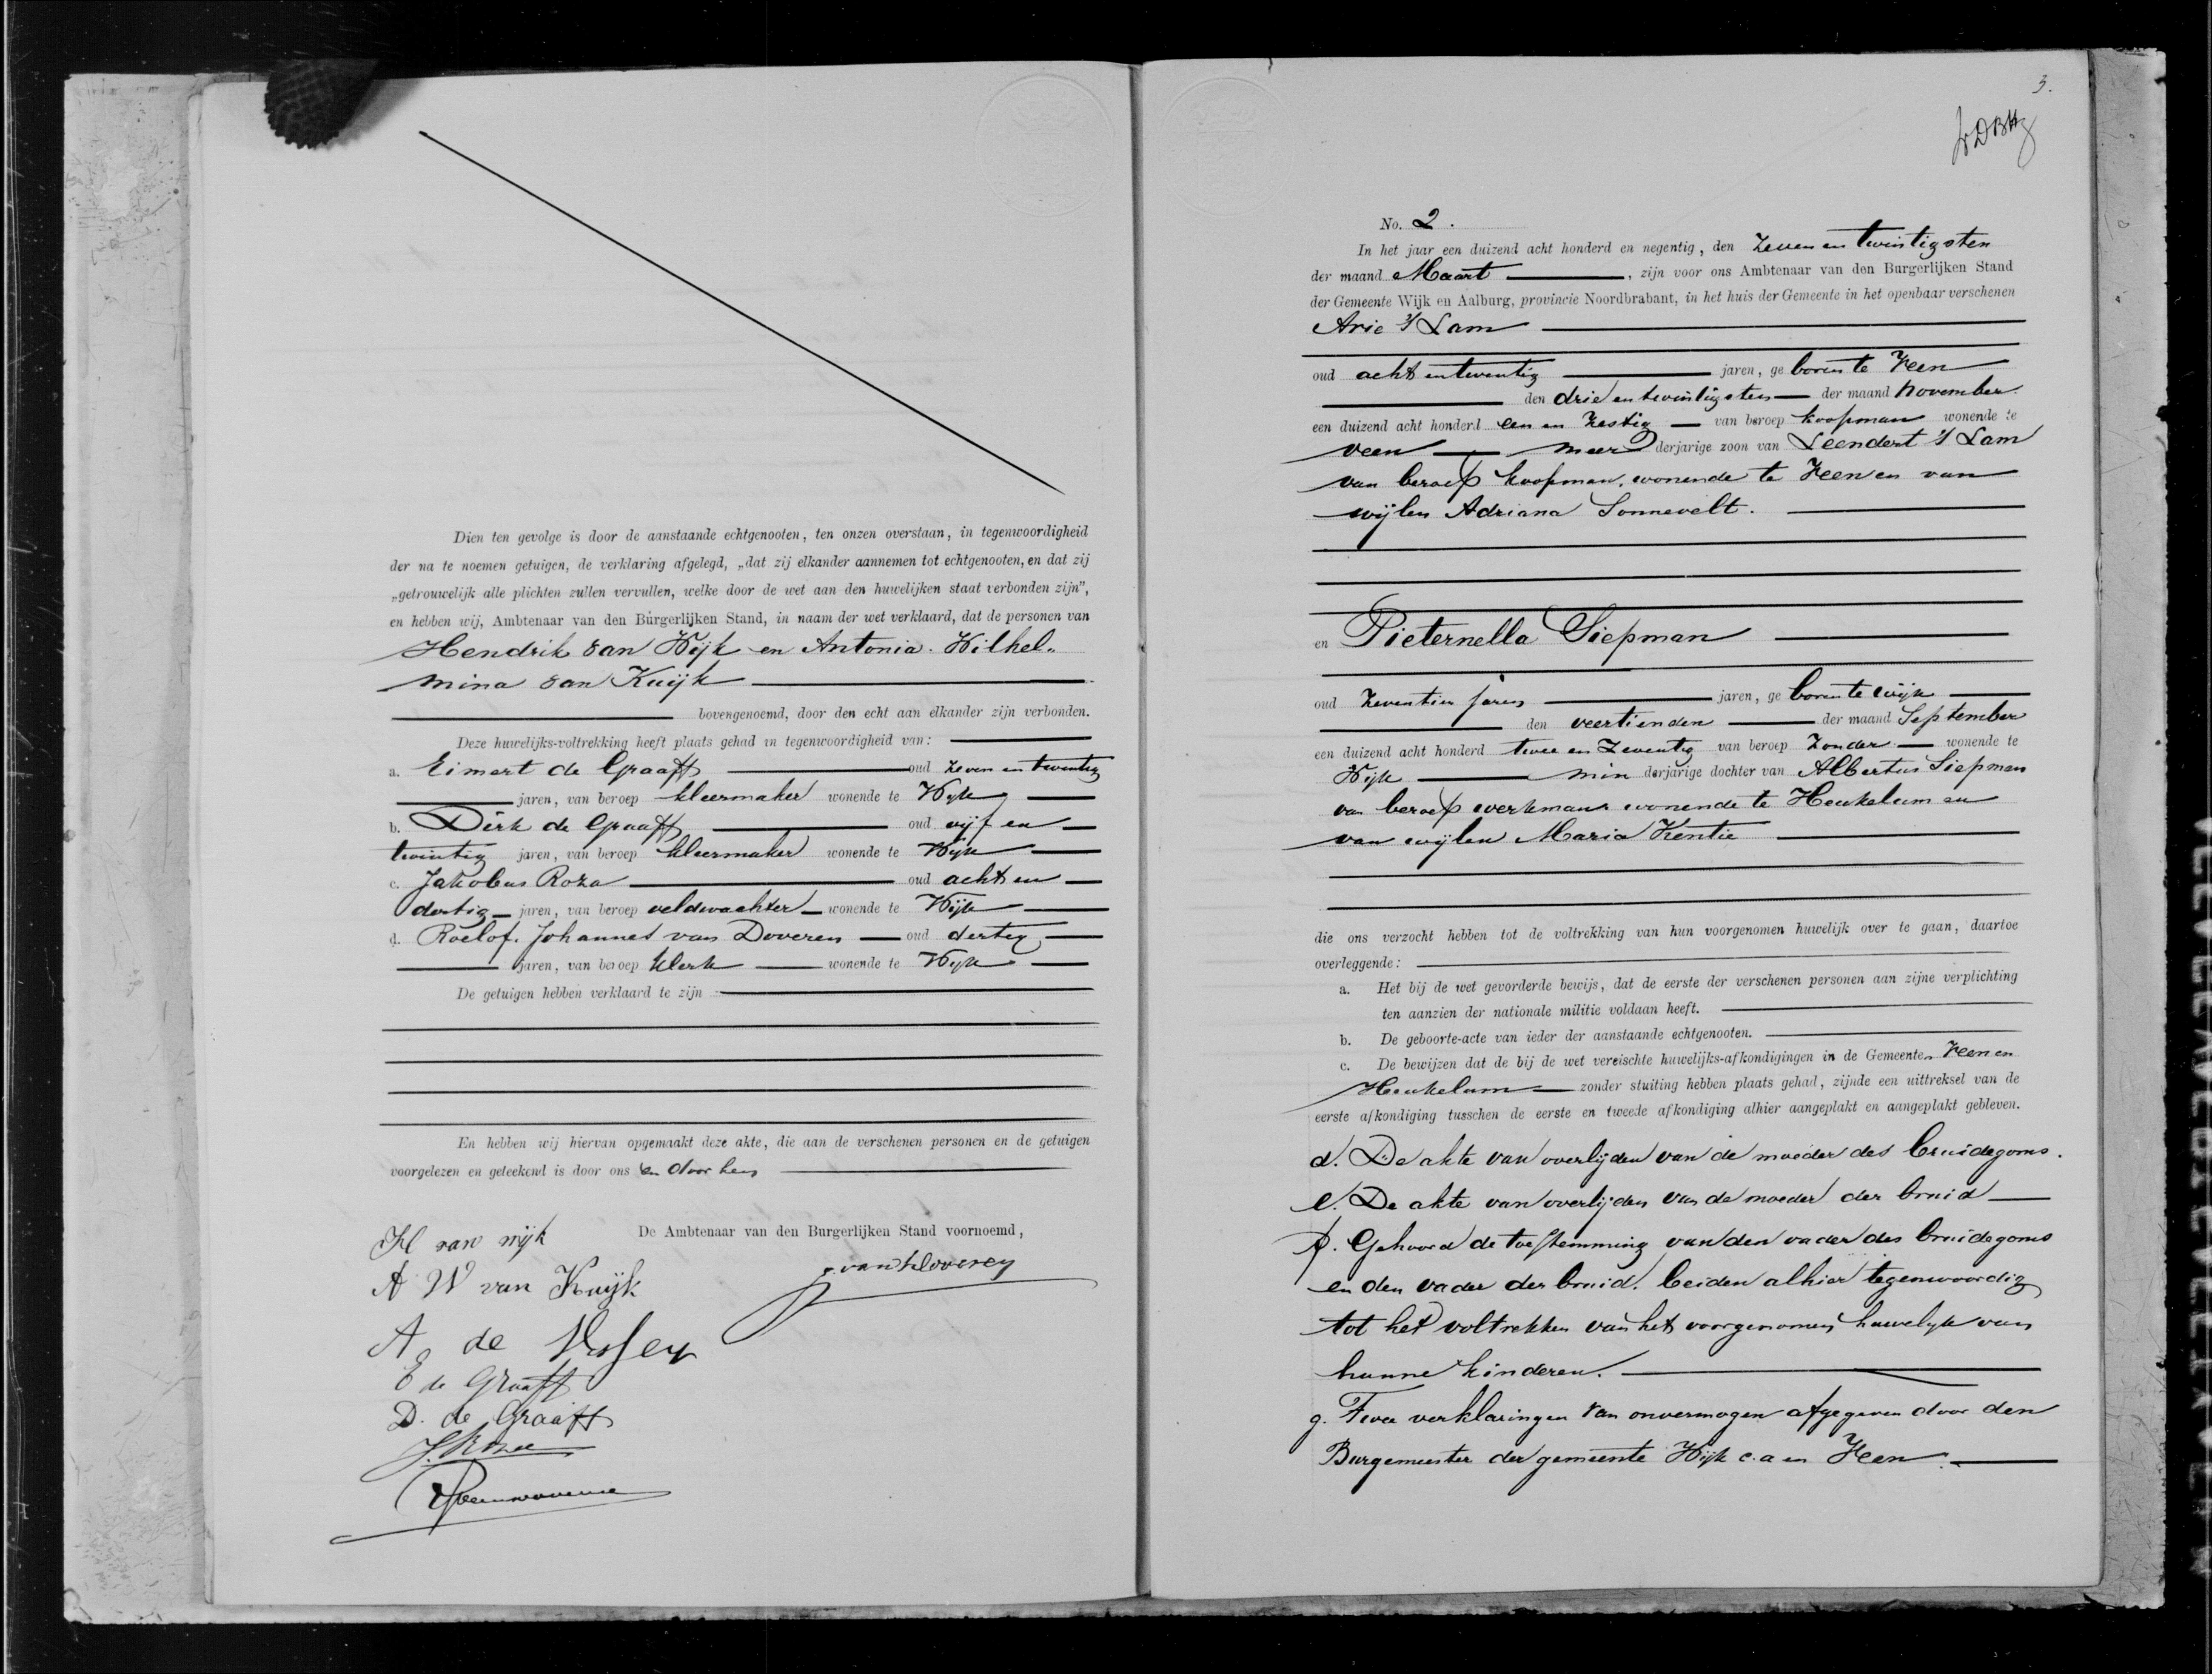 Dien ten gevolge is door de aanstaande echtgenooten, ten onzen overstaan, in tegenwoordigheid
der na te noemen getuigen, de verklaring afgelegd, „dat zij elkander aannemen tot echtgenooten, en dat zij
„getrouwelijk alle plichten zullen vervullen, welke door de wet aan den huwelijken staat verbonden zijn",
en hebben wij, Ambtenaar van den Burgerlijken Stand, in naam der wet verklaard, dat de personen van
Hendrik van Wijk en Antonia Wilhel„
mina van Kuijk
bovengenoemd, door den echt aan elkander zijn verbonden.
Deze huwelijks-voltrekking heeft plaats gehad in tegenwoordigheid van:
a. Eimert de Graaff oud zeven en twintig
jaren, van beroep kleermaker wonende te Wijk
b. Dirk de Graaff oud vijf en
twintig jaren, van beroep kleermaker wonende te Wijk
c. Jakobus Roza oud acht en
dertig jaren, van beroep veldwachter wonende te Wijk
d. Roelof Johannes van Doveren oud dertig
jaren, van beroep klerk wonende te Wijk
De getuigen hebben verklaard te zijn
En hebben wij hiervan opgemaakt deze akte, die aan de verschenen personen en de getuigen
voorgelezen en geteekend is door ons en door hen
De Ambtenaar van den Burgerlijken Stand voornoemd,
H van wijk
A W van Kuijk
A de
E de Graaff
D. de Graaff
3.
No. 2.
In het jaar een duizend acht honderd en negentig, den zeven en twintigsten
der maand Maart, zijn voor ons Ambtenaar van den Burgerlijken Stand
der Gemeente Wijk en Aalburg, provincie Noordbrabant, in het huis der Gemeente in het openbaar verschenen
Arie 's Lam
oud acht en twentig jaren, ge boren te Veen
den drie en twintigsten der maand November
een duizend acht honderd een en zestig van beroep koopman wonende te
Veen meer derjarige zoon van Leendert 's Lam
van beroep koopman, wonende te Veen en van
wijlen Adriana Sonnevelt.
en Pieternella Siepman
oud zeventien jaren jaren, ge boren te Wijk
den veertienden der maand September
een duizend acht honderd twee en zeventig van beroep zonder wonende te
Wijk min derjarige dochter van Albertus Siepman
van beroep werkman wonende te Heukelum en
van wijlen Maria Kentie
die ons verzocht hebben tot de voltrekking van hun voorgenomen huwelijk over te gaan, daartoe
overleggende:
a. Het bij de wet gevorderde bewijs, dat de eerste der verschenen personen aan zijne verplichting
ten aanzien der nationale militie voldaan heeft.
b. De geboorte-acte van ieder der aanstaande echtgenooten.
c. De bewijzen dat de bij de wet vereischte huwelijks-afkondigingen in de Gemeenten Veen en
Heukelum zonder stuiting hebben plaats gehad, zijnde een uittreksel van de
eerste afkondiging tusschen de eerste en tweede afkondiging alhier aangeplakt en aangeplakt gebleven.
d. De akte van overlijden van de moeder des bruidegoms.
e. De akte van overlijden van de moeder der bruid
f. Gehoord de toestemming van den vader des bruidegoms
en den vader der bruid, beiden alhier tegenwoordig
tot het voltrekken van het voorgenomen huwelijk van
hunne kinderen.
g. Twee verklaringen van onvermogen afgegeven door den
Burgemeester der gemeente Wijk c.a en Veen.